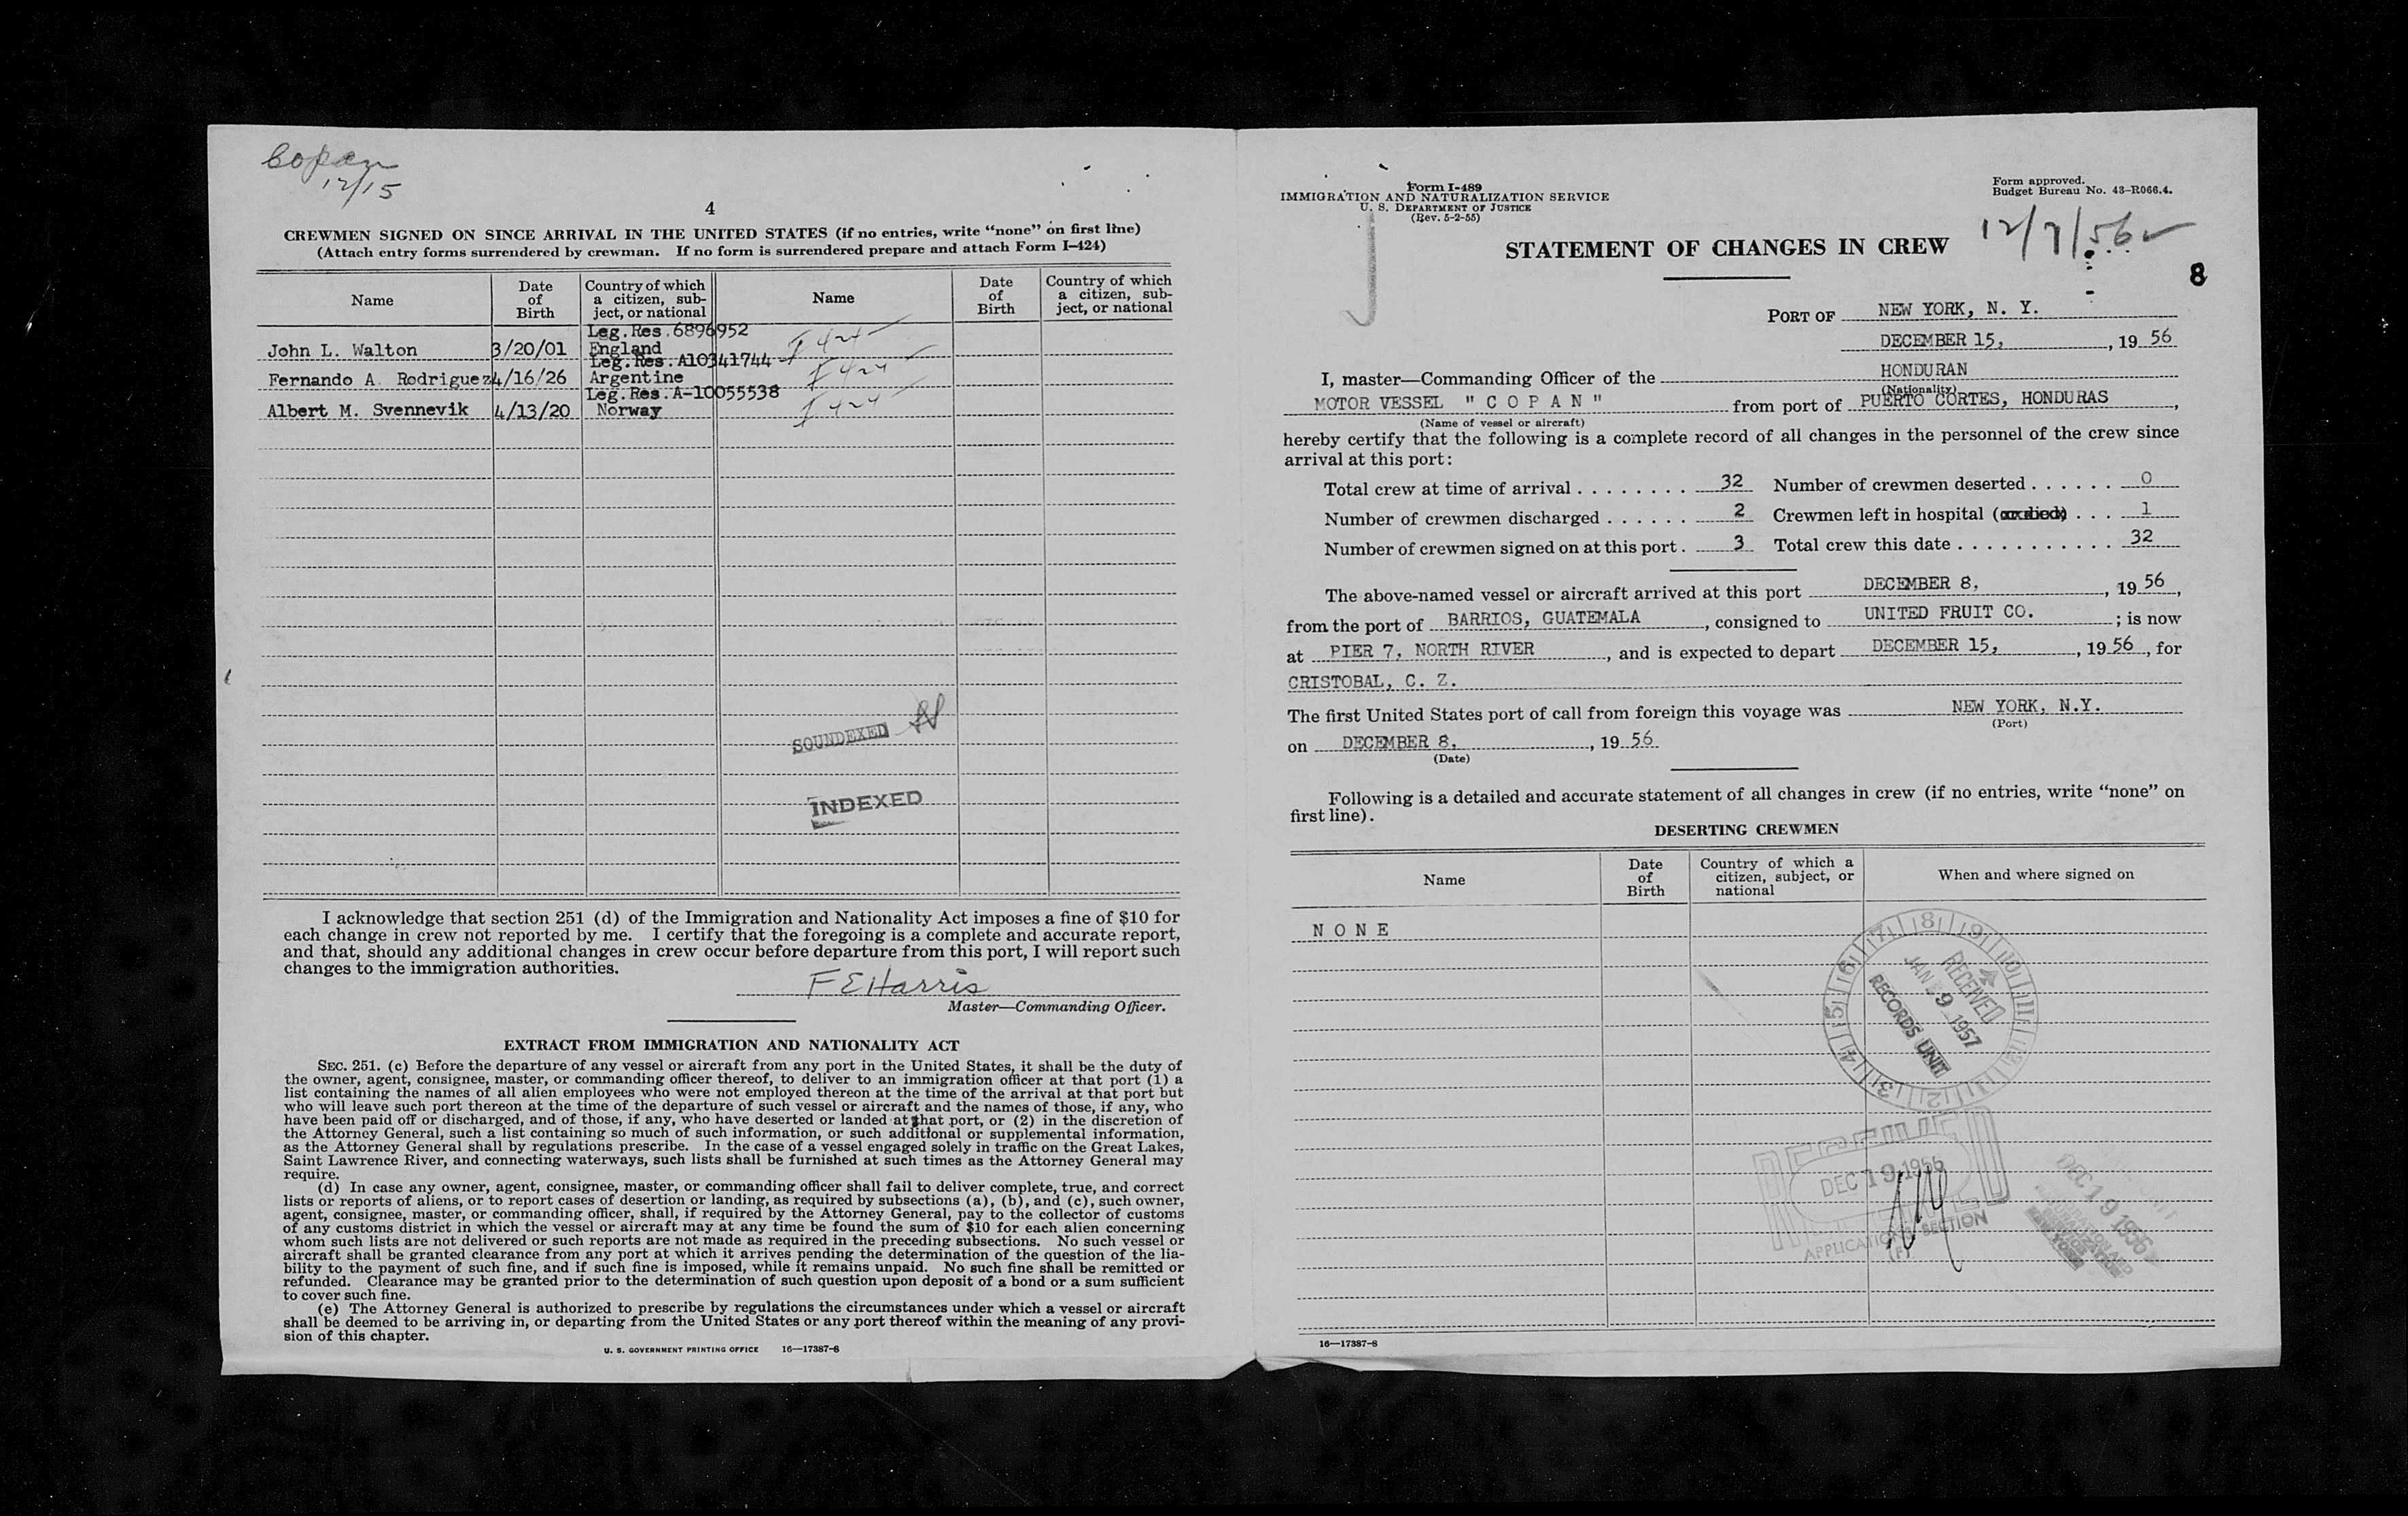 Copan
12/15
4
CREWMEN SIGNED ON SINCE ARRIVAL IN THE UNITED STATES (if no entries, write "none" on first line)
(Attach entry forms surrendered by crewman. If no form is surrendered prepare and attach Form I-424)
Name Date of Birth Country of which a citizen, subject, or national Name Date of Birth Country of which a citizen, subject, or national
Leg. Res. 6896952
John L. Walton 3/20/01 England I 424
Leg. Res. A10341744
Fernando A. Rodriguez 4/16/26 Argentine I 424
Leg. Res. A-10055538
Albert M. Svennevik 4/13/20 Norway I 424
SOUNDEXED
INDEXED
I acknowledge that section 251 (d) of the Immigration and Nationality Act imposes a fine of $10 for
each change in crew not reported by me. I certify that the foregoing is a complete and accurate report,
and that, should any additional changes in crew occur before departure from this port, I will report such
changes to the immigration authorities.
F E Harris
Master—Commanding Officer.
EXTRACT FROM IMMIGRATION AND NATIONALITY ACT
SEC. 251. (c) Before the departure of any vessel or aircraft from any port in the United States, it shall be the duty of
the owner, agent, consignee, master, or commanding officer thereof, to deliver to an immigration officer at that port (1) a
list containing the names of all alien employees who were not employed thereon at the time of the arrival at that port but
who will leave such port thereon at the time of the departure of such vessel or aircraft and the names of those, if any, who
have been paid off or discharged, and of those, if any, who have deserted or landed at that port, or (2) in the discretion of
the Attorney General, such a list containing so much of such information, or such additional or supplemental information,
as the Attorney General shall by regulations prescribe. In the case of a vessel engaged solely in traffic on the Great Lakes,
Saint Lawrence River, and connecting waterways, such lists shall be furnished at such times as the Attorney General may
require.
(d) In case any owner, agent, consignee, master, or commanding officer shall fail to deliver complete, true, and correct
lists or reports of aliens, or to report cases of desertion or landing, as required by subsections (a), (b), and (c), such owner,
agent, consignee, master, or commanding officer, shall, if required by the Attorney General, pay to the collector of customs
of any customs district in which the vessel or aircraft may at any time be found the sum of $10 for each alien concerning
whom such lists are not delivered or such reports are not made as required in the preceding subsections. No such vessel or
aircraft shall be granted clearance from any port at which it arrives pending the determination of the question of the lia-
bility to the payment of such fine, and if such fine is imposed, while it remains unpaid. No such fine shall be remitted or
refunded. Clearance may be granted prior to the determination of such question upon deposit of a bond or a sum sufficient
to cover such fine.
(e) The Attorney General is authorized to prescribe by regulations the circumstances under which a vessel or aircraft
shall be deemed to be arriving in, or departing from the United States or any port thereof within the meaning of any provi-
sion of this chapter.
U. S. GOVERNMENT PRINTING OFFICE 16—17387-8
Form I-489
IMMIGRATION AND NATURALIZATION SERVICE
U. S. DEPARTMENT OF JUSTICE
(Rev. 5-2-55)
Form approved.
Budget Bureau No. 43-R066.4.
12/7/56
STATEMENT OF CHANGES IN CREW
8
PORT OF NEW YORK, N. Y.
DECEMBER 15, , 19 56
I, master—Commanding Officer of the HONDURAN
(Nationality)
MOTOR VESSEL " C O P A N " from port of PUERTO CORTES, HONDURAS ,
(Name of vessel or aircraft)
hereby certify that the following is a complete record of all changes in the personnel of the crew since
arrival at this port:
Total crew at time of arrival . . . . . . . . 32 Number of crewmen deserted . . . . . . 0
Number of crewmen discharged . . . . . . 2 Crewmen left in hospital (or died) . . . 1
Number of crewmen signed on at this port . 3 Total crew this date . . . . . . . . . . . 32
The above-named vessel or aircraft arrived at this port DECEMBER 8, , 19 56 ,
from the port of BARRIOS, GUATEMALA , consigned to UNITED FRUIT CO. ; is now
at PIER 7, NORTH RIVER , and is expected to depart DECEMBER 15, , 19 56 , for
CRISTOBAL, C. Z.
The first United States port of call from foreign this voyage was NEW YORK, N.Y.
(Port)
on DECEMBER 8, , 19 56
(Date)
Following is a detailed and accurate statement of all changes in crew (if no entries, write "none" on
first line).
DESERTING CREWMEN
Name Date of Birth Country of which a citizen, subject, or national When and where signed on
N O N E
7 8 9 10 11 12 1 2 3 4 5 6
RECEIVED
JAN 9 1957
RECORDS UNIT
DEC 19 1956
APPLICATIONS SECTION
(F)
DEC 19 1956
16—17387-8